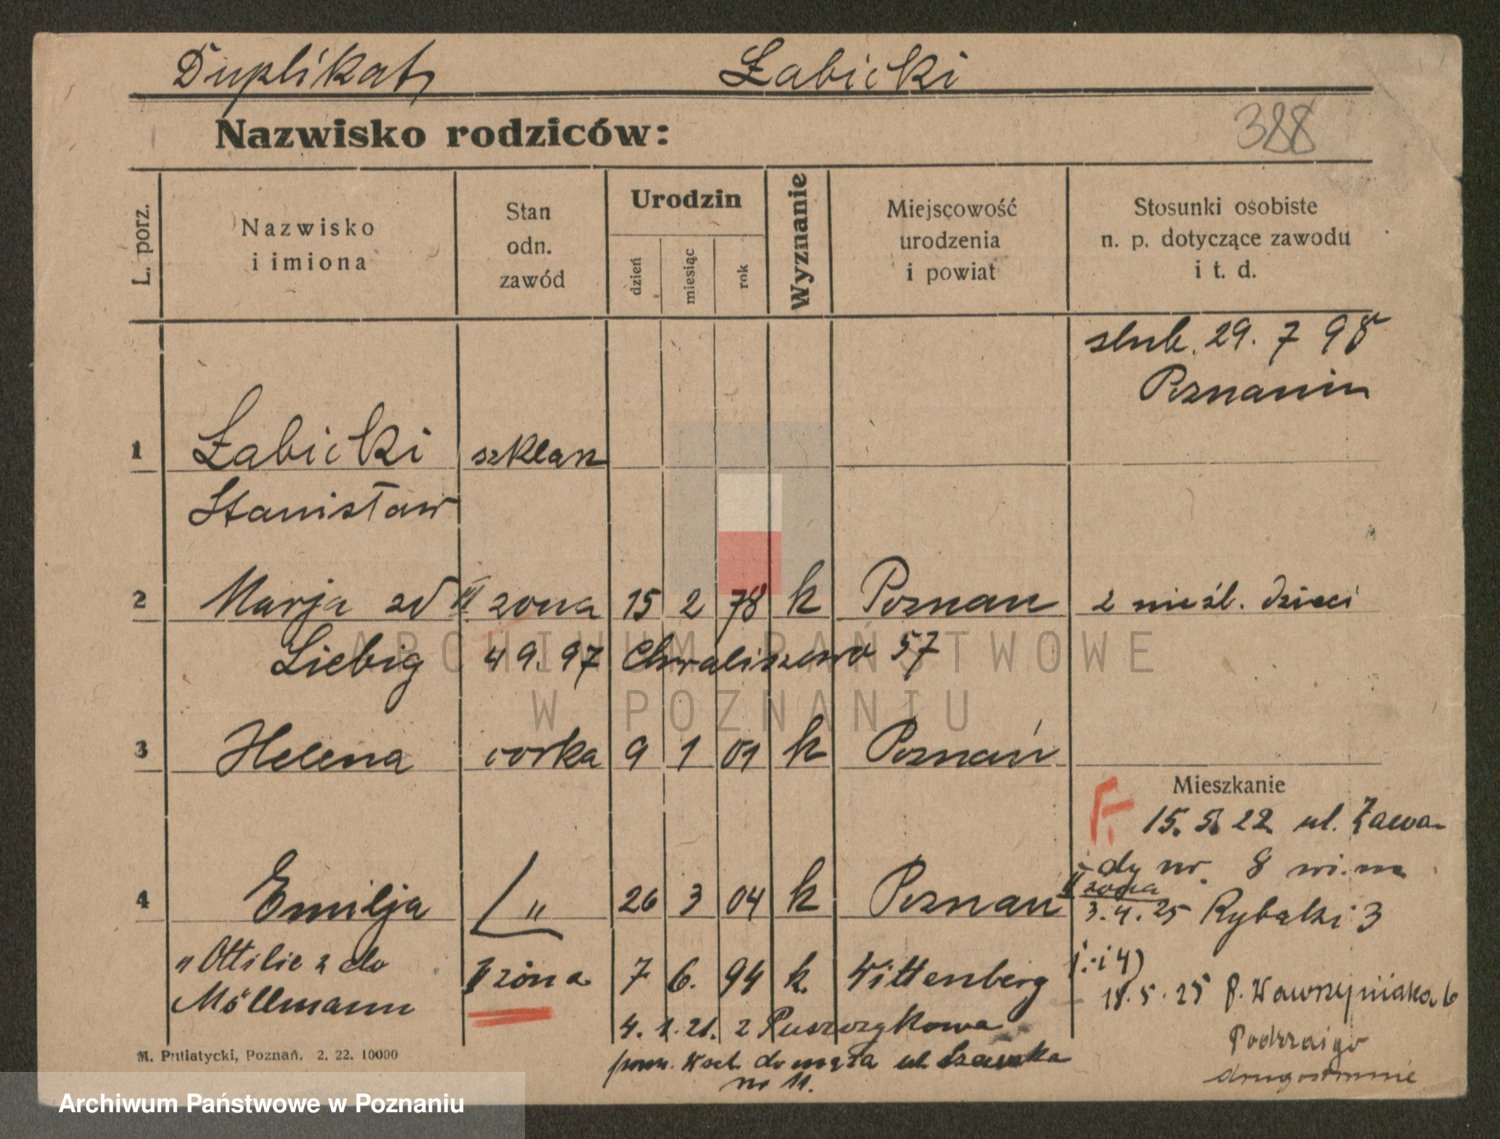 Duplikat Łabicki
Nazwisko rodziców:
388
L. porz.
Nazwisko
i imiona
Stan
odn.
zawód
Urodzin
dzień
miesiąc
rok
Wyznanie
Miejscowość
urodzenia
i powiat
Stosunki osobiste
n. p. dotyczące zawodu
i t. d.
ślub. 29. 7 98
Poznaniu
1 Łabicki szklarz
Stanisław
2 Marja zd II żona 15 2 78 k Poznań 2 nieśl. dzieci
Liebig 4 9. 97 Chwaliszewo 57
3 Helena córka 9 1 01 k Poznań
Mieszkanie
15. 5. 22 ul. Zawa-
dy nr. 8
4 Emilja " 26 3 04 k Poznań
II żona
3.4.25 Rybaki 3
" Ottilie z do II żona 7 6. 94 k. Wittenberg
Möllmann
18.5.25 P. Wawrzyniaka 6
4. 1. 21. z Puszczykowa
do męża ul.
no 11.
M. Putiatycki, Poznań. 2. 22. 10000
ARCHIWUM PAŃSTWOWE
W POZNANIU
Archiwum Państwowe w Poznaniu